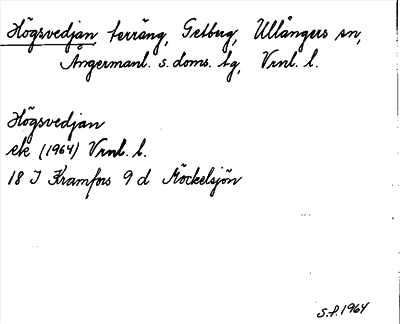 Högsvedjan, terräng, Getberg, Ullångers sn,
Ångermanl. s. doms. tg, Vrnl. l.
Högsvedjan
ek (1964) Vrnl. l.
18 I Kramfors 9 d Möckelsjön
S.f. 1964